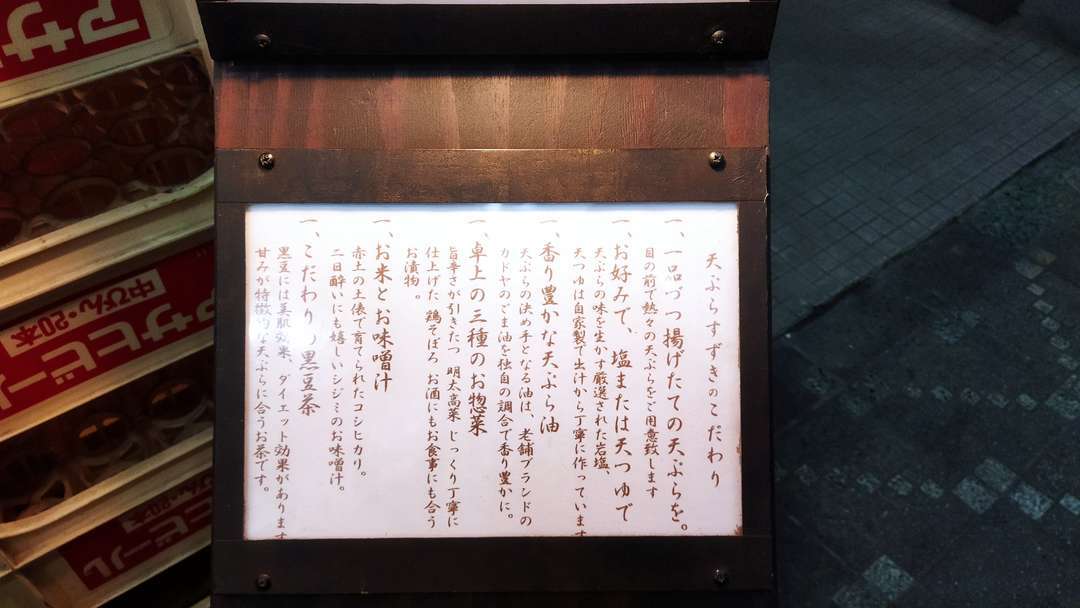 天ぷらすずきのこだわり
一、一品づつ揚げたての天ぷらを。
目の前で熱々の天ぷらをご用意致します
一、お好みで、塩または天つゆで
天ぷらの味を生かす厳選された岩塩、
天つゆは自家製で出汁から丁寧に作っています
一、香り豊かな天ぷら油
天ぷらの決め手となる油は、老舗ブランドの
カドヤのごま油を独自の調合で香り豊かに。
一、卓上の三種のお惣菜
旨辛さが引きたつ 明太高菜 じっくり丁寧に
仕上げた 鶏そぼろ お酒にもお食事にも合う
お漬物。
一、お米とお味噌汁
赤土の土俵で育てられたコシヒカリ。
二日酔いにも嬉しいシジミのお味噌汁。
一、こだわりの黒豆茶
黒豆には美肌効果、ダイエット効果があります
甘みが特徴的な天ぷらに合うお茶です。
アサ
アサヒビー
中びん・20本
ビール